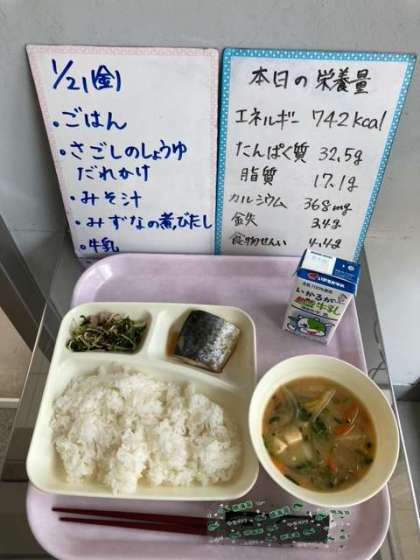 1/21(金)
・ごはん
・さごしのしょうゆ
だれかけ
・みそ汁
・みずなの煮びたし
・牛乳
本日の栄養量
エネルギー 742kcal
たんぱく質 32.5g
脂質 17.1g
カルシウム 368mg
鉄 3.4g
食物せんい 4.4g
いかるが
牛乳